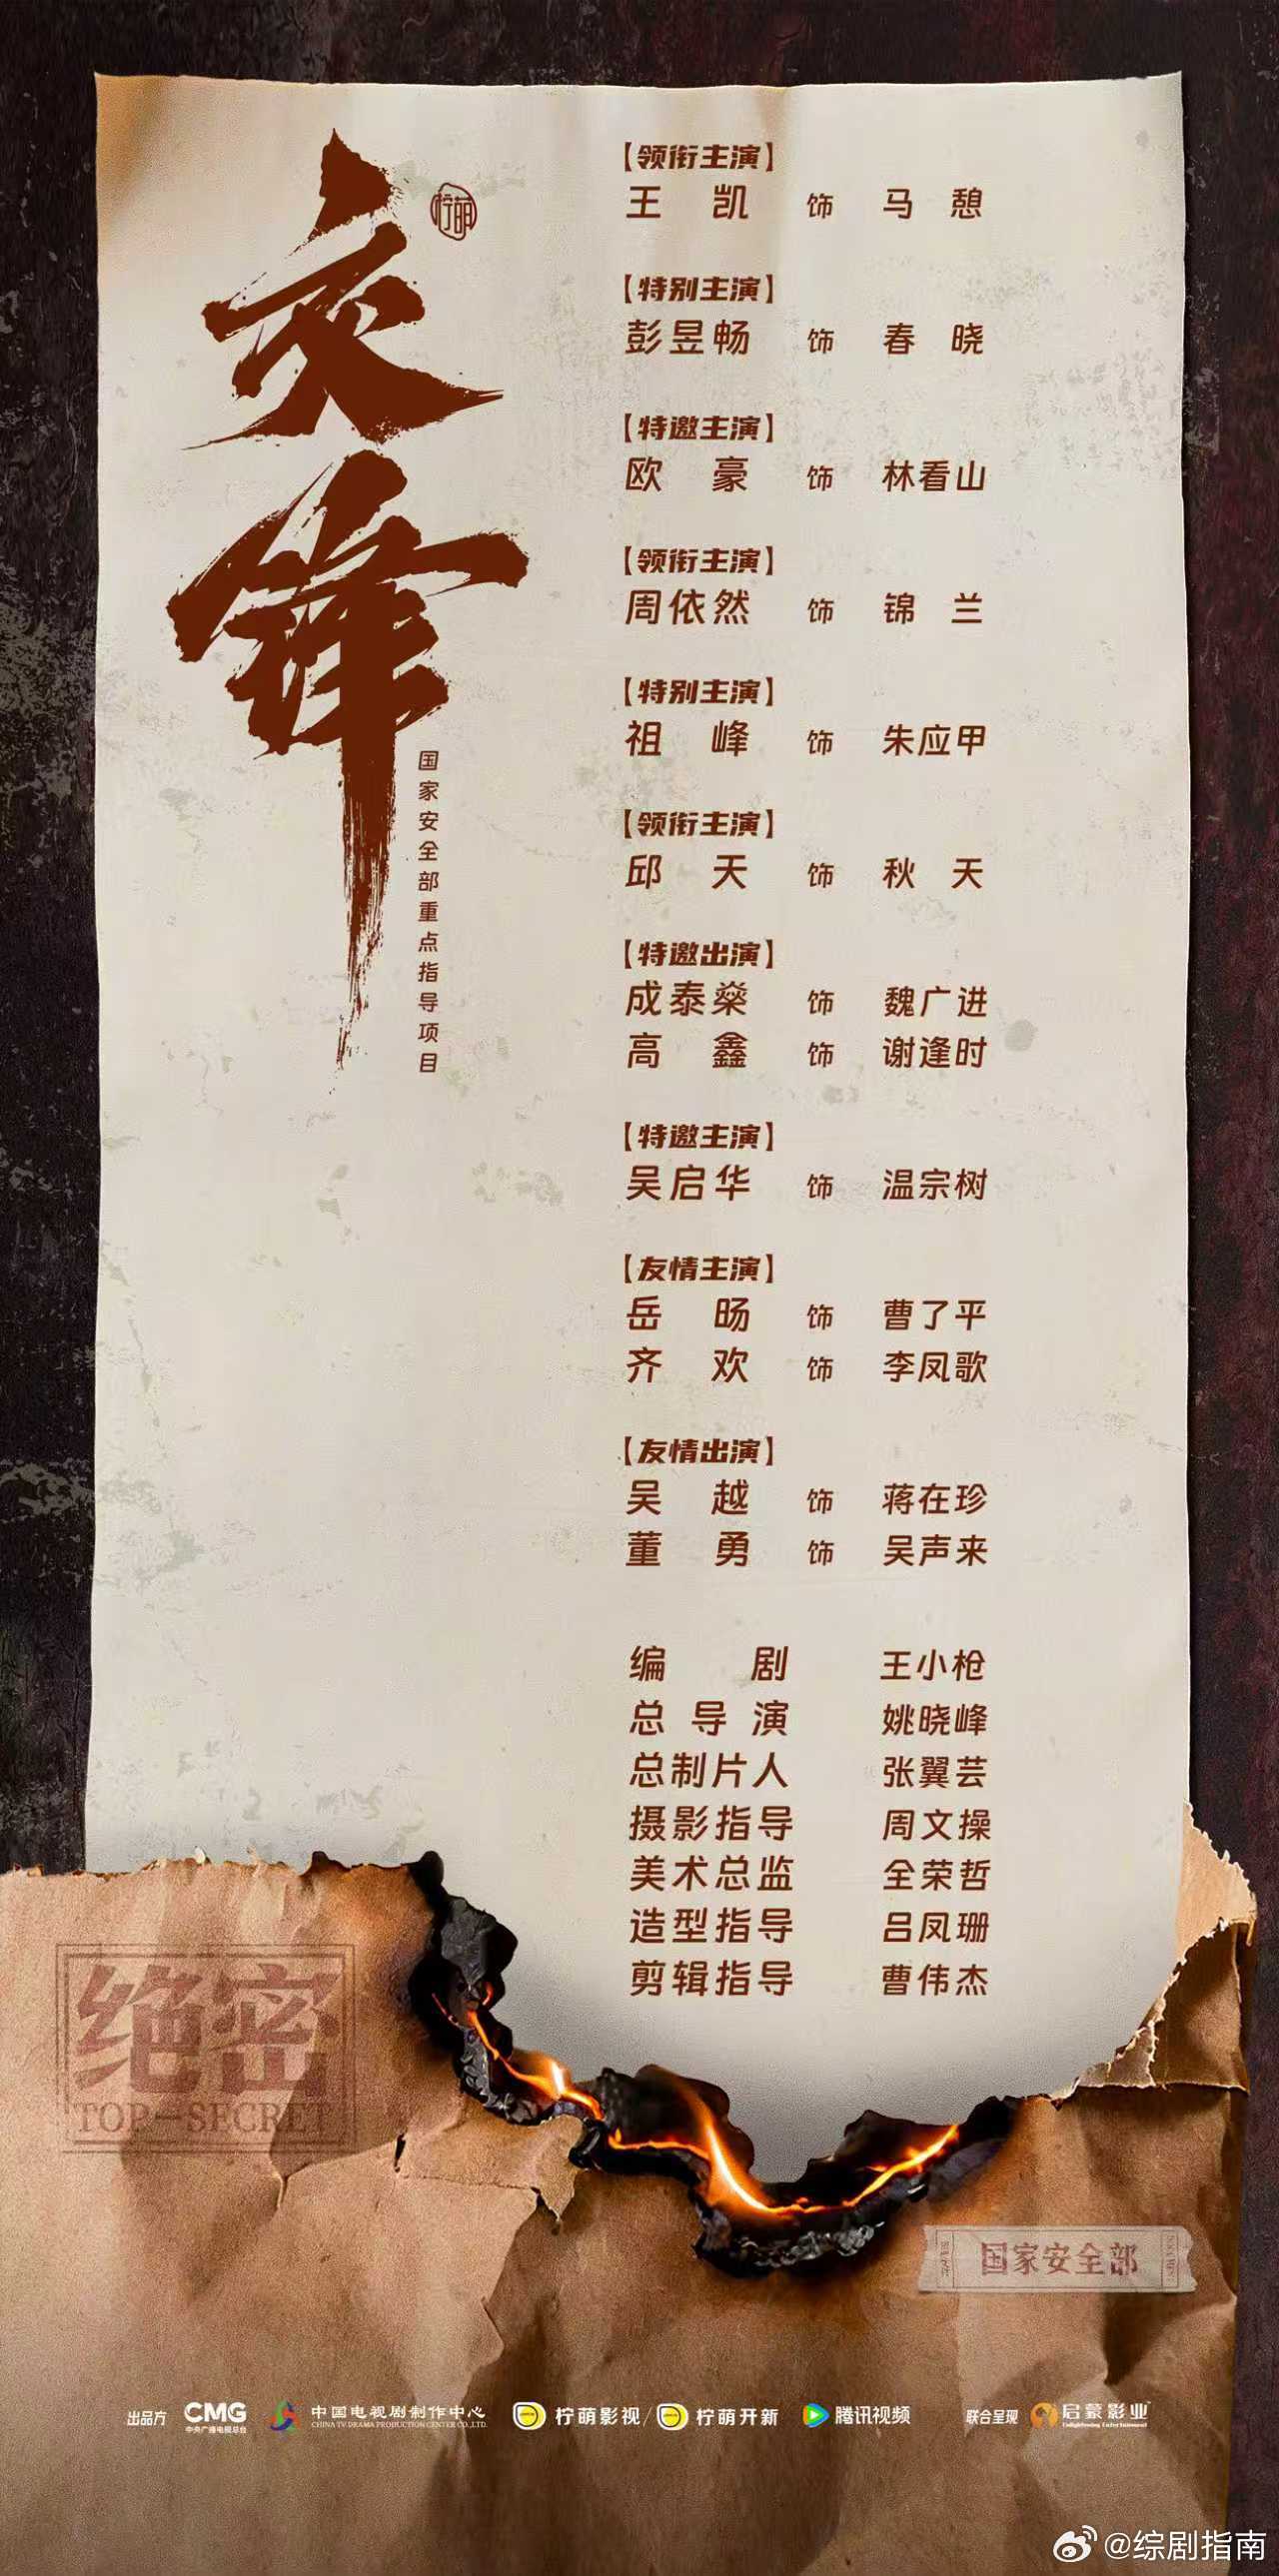 交锋
柠萌
国家安全部重点指导项目
【领衔主演】
王凯 饰 马憩
【特别主演】
彭昱畅 饰 春晓
【特邀主演】
欧豪 饰 林看山
【领衔主演】
周依然 饰 锦兰
【特别主演】
祖峰 饰 朱应甲
【领衔主演】
邱天 饰 秋天
【特邀出演】
成泰燊 饰 魏广进
高鑫 饰 谢逢时
【特邀主演】
吴启华 饰 温宗树
【友情主演】
岳旸 饰 曹了平
齐欢 饰 李凤歌
【友情出演】
吴越 饰 蒋在珍
董勇 饰 吴声来
编剧 王小枪
总导演 姚晓峰
总制片人 张翼芸
摄影指导 周文操
美术总监 全荣哲
造型指导 吕凤珊
剪辑指导 曹伟杰
绝密
TOP-SECRET
国家安全部
出品方 CMG 中央广播电视总台 中国电视剧制作中心 CHINA TV DRAMA PRODUCTION CENTER CO.,LTD. 柠萌影视/柠萌开新 腾讯视频 联合呈现 启蒙影业 Enlightening Entertainment
@综剧指南